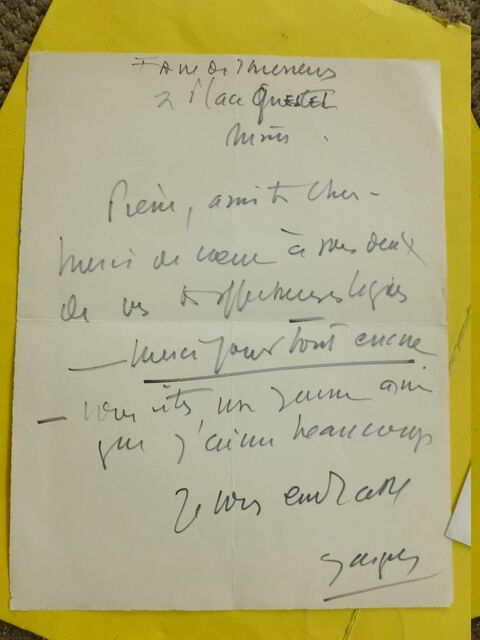 2 Place Questel
Nîmes.
Pierre, ami très cher -
Merci de cœur à vous deux
de vos si affectueuses lignes
— Merci pour tout encore
— vous êtes un jeune ami
que j'aime beaucoup
Je vous embrasse